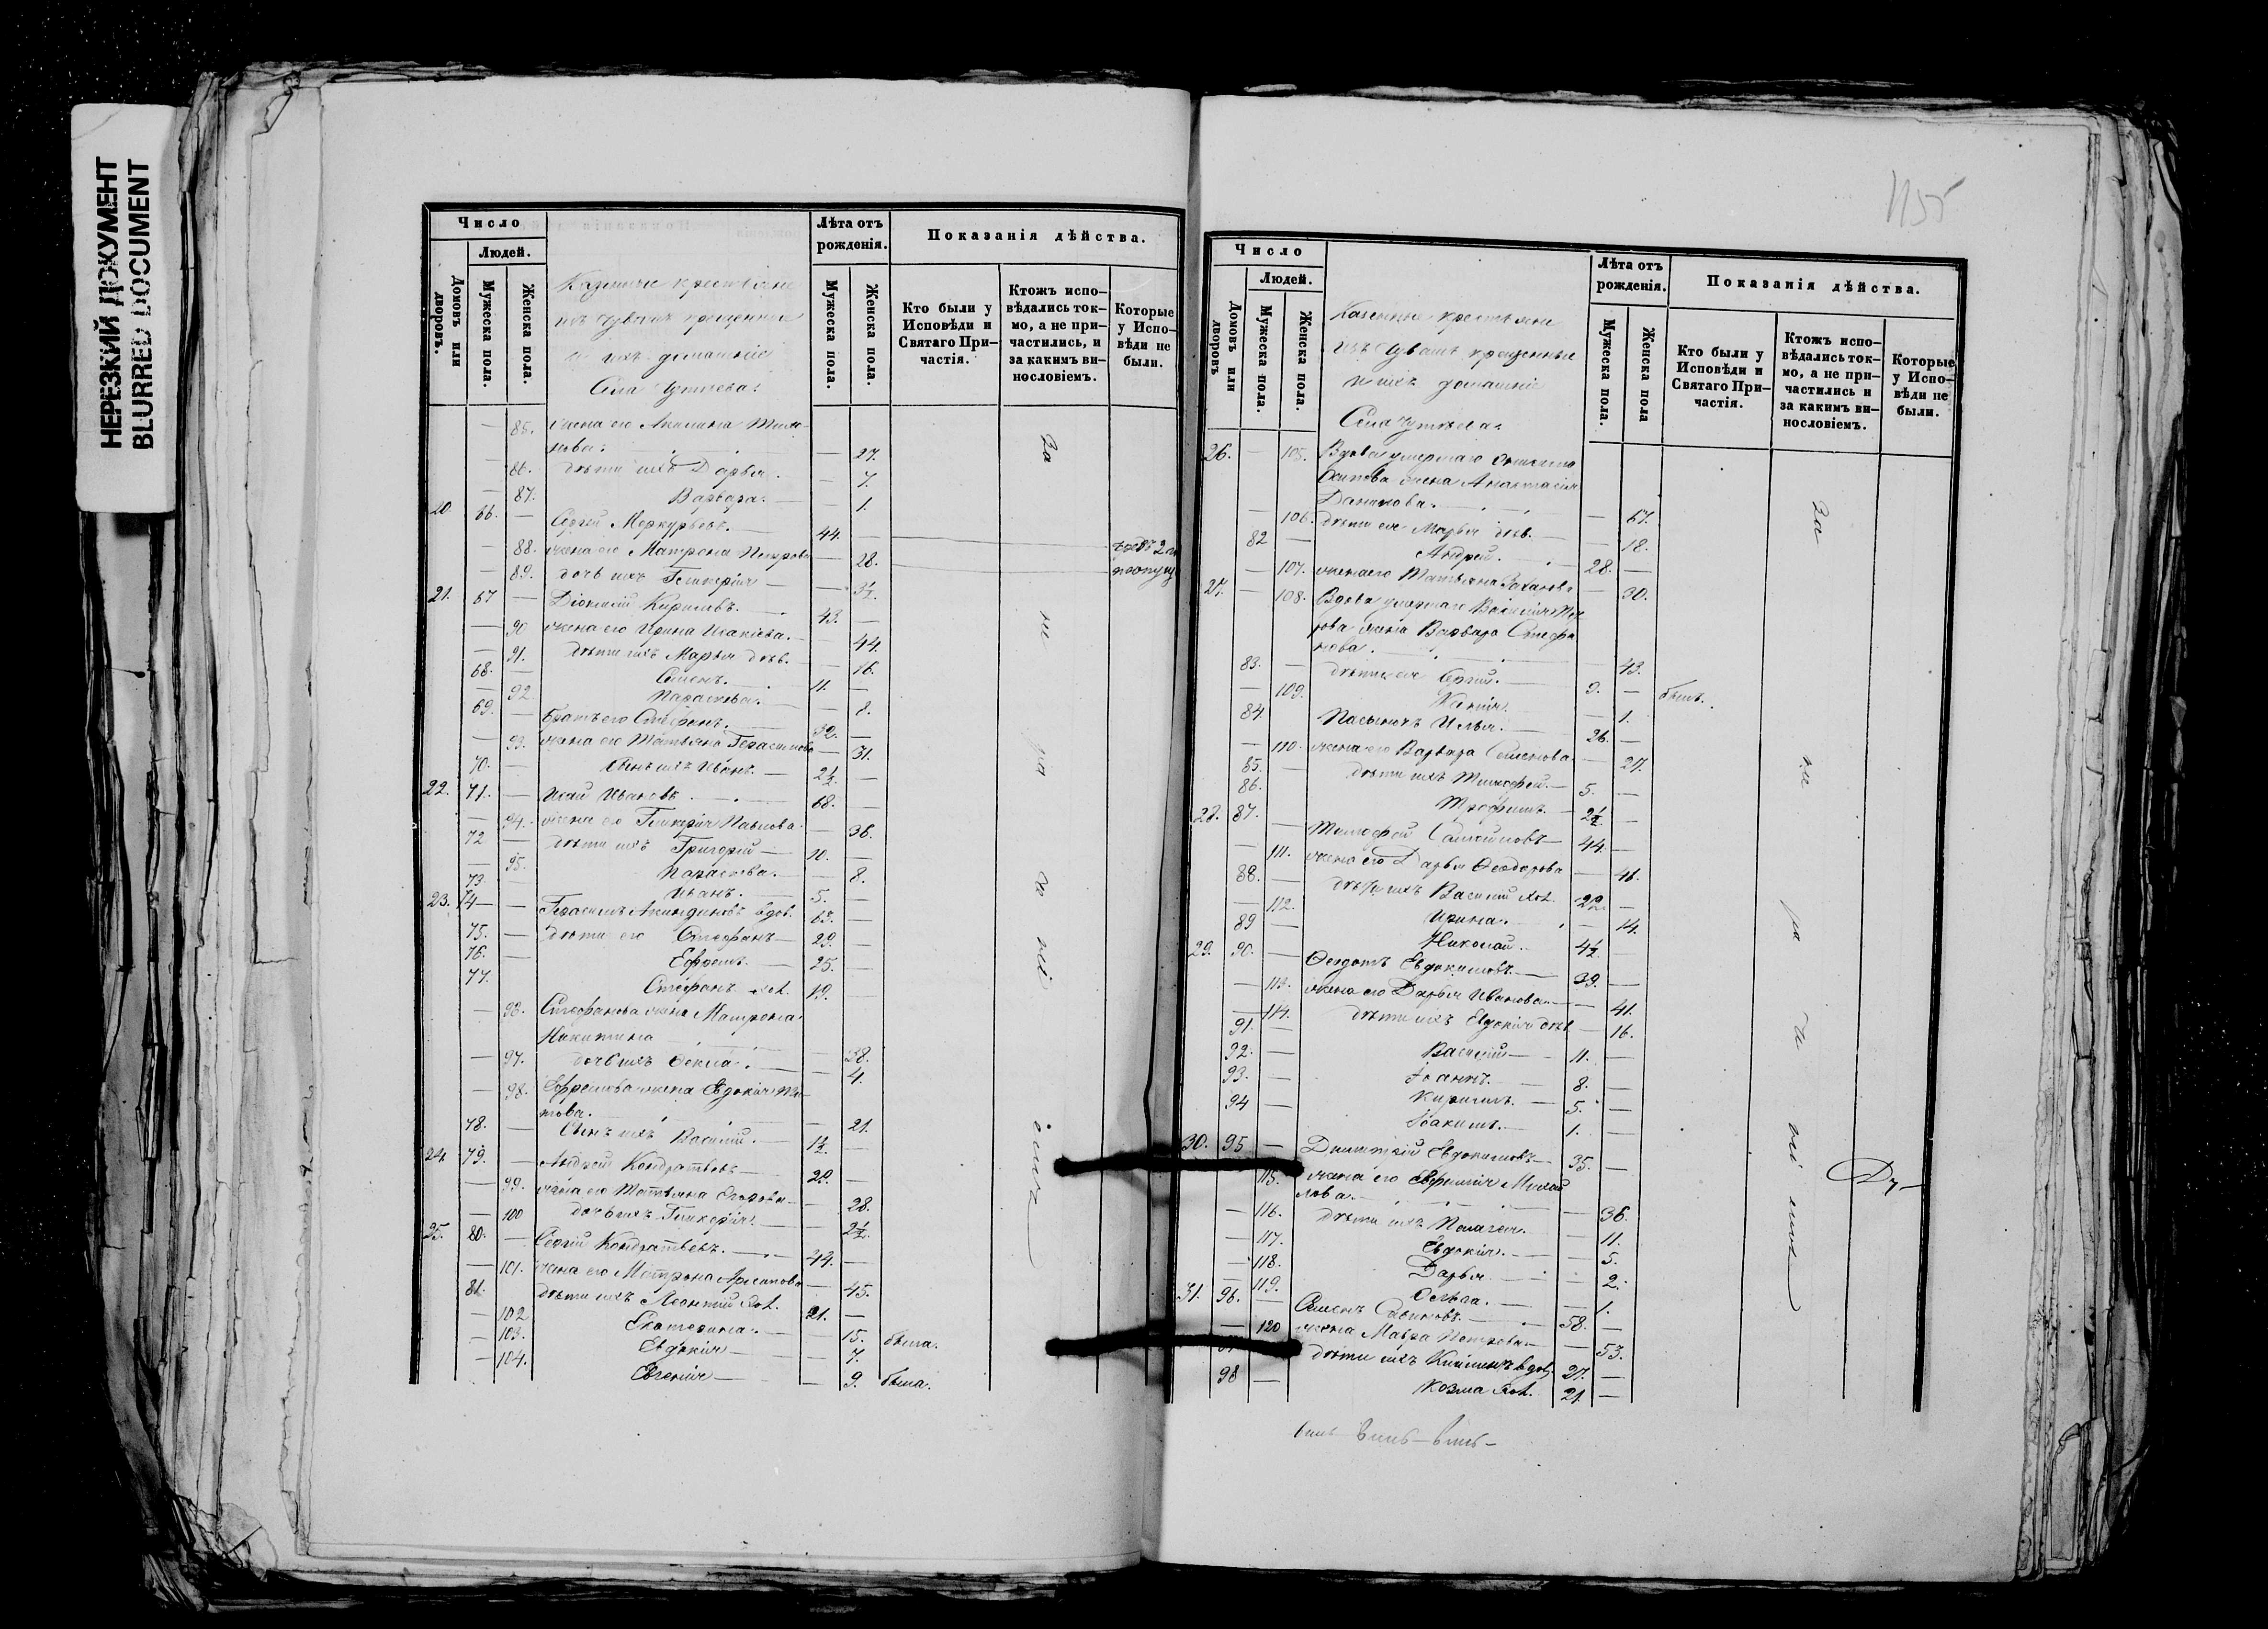 НЕРЕЗКИЙ ДОКУМЕНТ
BLURRED DOCUMENT
Число
Людей.
Домовъ или дворовъ.
Мужеска пола.
Женска пола.
Казенные крестьяне
изъ Чувашъ крещенные
и ихъ домашніе
Села
Лѣта отъ рожденія.
Мужеска пола.
Женска пола.
Показанія дѣйства.
Кто были у Исповѣди и Святаго При-частія.
Ктожъ испо-вѣдались ток-мо, а не при-частились, и за какимъ ви-нословіемъ.
Которые у Испо-вѣди не были.
— 85. жена его Акилина
— 27.
— 86. дѣти ихъ Дарья. — 7.
— 87. Варвара. — 1.
20. 66. — Сергій Меркурьевъ. 44. —
— 88. жена его Матрона Петрова — 28.
— 89. дочь ихъ Гликерія —
21. 67 — Діонисій Кириловъ. 43. —
— 90 жена его Ирина Исакіева. — 44.
— 91. дѣти ихъ Марья дѣв. — 16.
68. — Семенъ. 11. —
— 92 Параскева. — 8.
69. — братъ его Стефанъ. 32. —
— 93. жена его Татьяна Герасимова — 31.
70. — сынъ ихъ Иванъ. — 2½ —
22. 71. — Исай Ивановъ 68. —
— 94. жена его Гликерія Павлова — 36.
72 — дѣти ихъ Григорій — 10. —
— 95. Параскева. — 8.
73. — Иванъ. 5. —
23. 74 — Герасимъ Акиндиновъ вдов. 63. —
75. — дѣти его Стефанъ — 29. —
76. — Ефремъ. 25. —
77. — Стефанъ хол. 19. —
— 96. Стефанова жена Матрона
Никитина — 38.
— 97. дочь ихъ Фекла. — 4.
— 98. Ефремова жена Евдокія Ти-
това. — 21.
78. — сынъ ихъ Василій. 1½ —
24. 79. — Андрей Кондратьевъ — 22. —
— 99. жена его Татьяна Егорова — 28.
— 100 дочь ихъ Гликерія. — 2½
25. 80. — Сергій Кондратьевъ. 49. —
— 101. жена его Матрона Архипова — 45.
81. дѣти ихъ Леонтій хол. 21. —
— 102 Екатерина. — 15. была.
— 103. Евдокія — 7.
— 104. Евгенія — 9. была.
За не ра де ні емъ
1155
Число
Людей.
Домовъ или дворовъ
Мужеска пола.
Женска пола.
Казенные крестьяне
изъ Чувашъ крещенные
и ихъ домашніе
Села
Лѣта отъ рожденія.
Мужеска пола.
Женска пола
Показанія дѣйства.
Кто были у Исповѣди и Святаго При-частія.
Ктожъ испо-вѣдались ток-мо, а не при-частились и за какимъ ви-нословіемъ.
Которые у Испо-вѣди не были.
26. — 105. Вдова умершаго
Осипова жена Анастасія
Данилова. — 67.
— 106. дѣти ея Марья дѣв. — 18.
82 — Андрей. 28. —
— 107. жена его Татьяна Захарова — 30.
27. — 108. Вдова умершаго Василія Пет
рова жена Варвара Стефа
нова. — 43.
83. — дѣти ея Сергій. 9. — былъ.
— 109. Ксенія — 1.
84. Пасынокъ Илья. 26. —
— 110. жена его Варвара Семенова — 27.
85. — дѣти ихъ Тимофей. — 5. —
86. Трофимъ. — 2½ —
28. 87. — Тимофей Самойловъ — 44. —
— 111. жена его Дарья Феодорова — 46.
88. — дѣти ихъ Василій хол. 22. —
— 112. Ирина. — 14.
89 — Николай. 4½ —
29. 90. — Федотъ Евдокимовъ. 39. —
— 113. жена его Дарья Иванова — 41.
— 114. дѣти ихъ Евдокія дѣв. — 16.
91. — Василій — 11. —
92. — Іоаннъ. 8. —
93. — Кирилъ. — 5. —
94 — Іоакимъ. — 1. —
30. 95 — Димитрій Евдокимовъ — 35. —
115. жена его Евфимія Михай
лова. — 36.
— 116. дѣти ихъ Пелагея. — 11.
— 117. Евдокія. — 5.
— 118. Дарья — 2.
— 119. Ольга. — 1.
31. 96. — Семенъ 58. —
— 120 жена Мавра Петрова — 53.
97 дѣти ихъ вдов. 27. —
98 — Козма хол. 21. —
За не ра де ні емъ